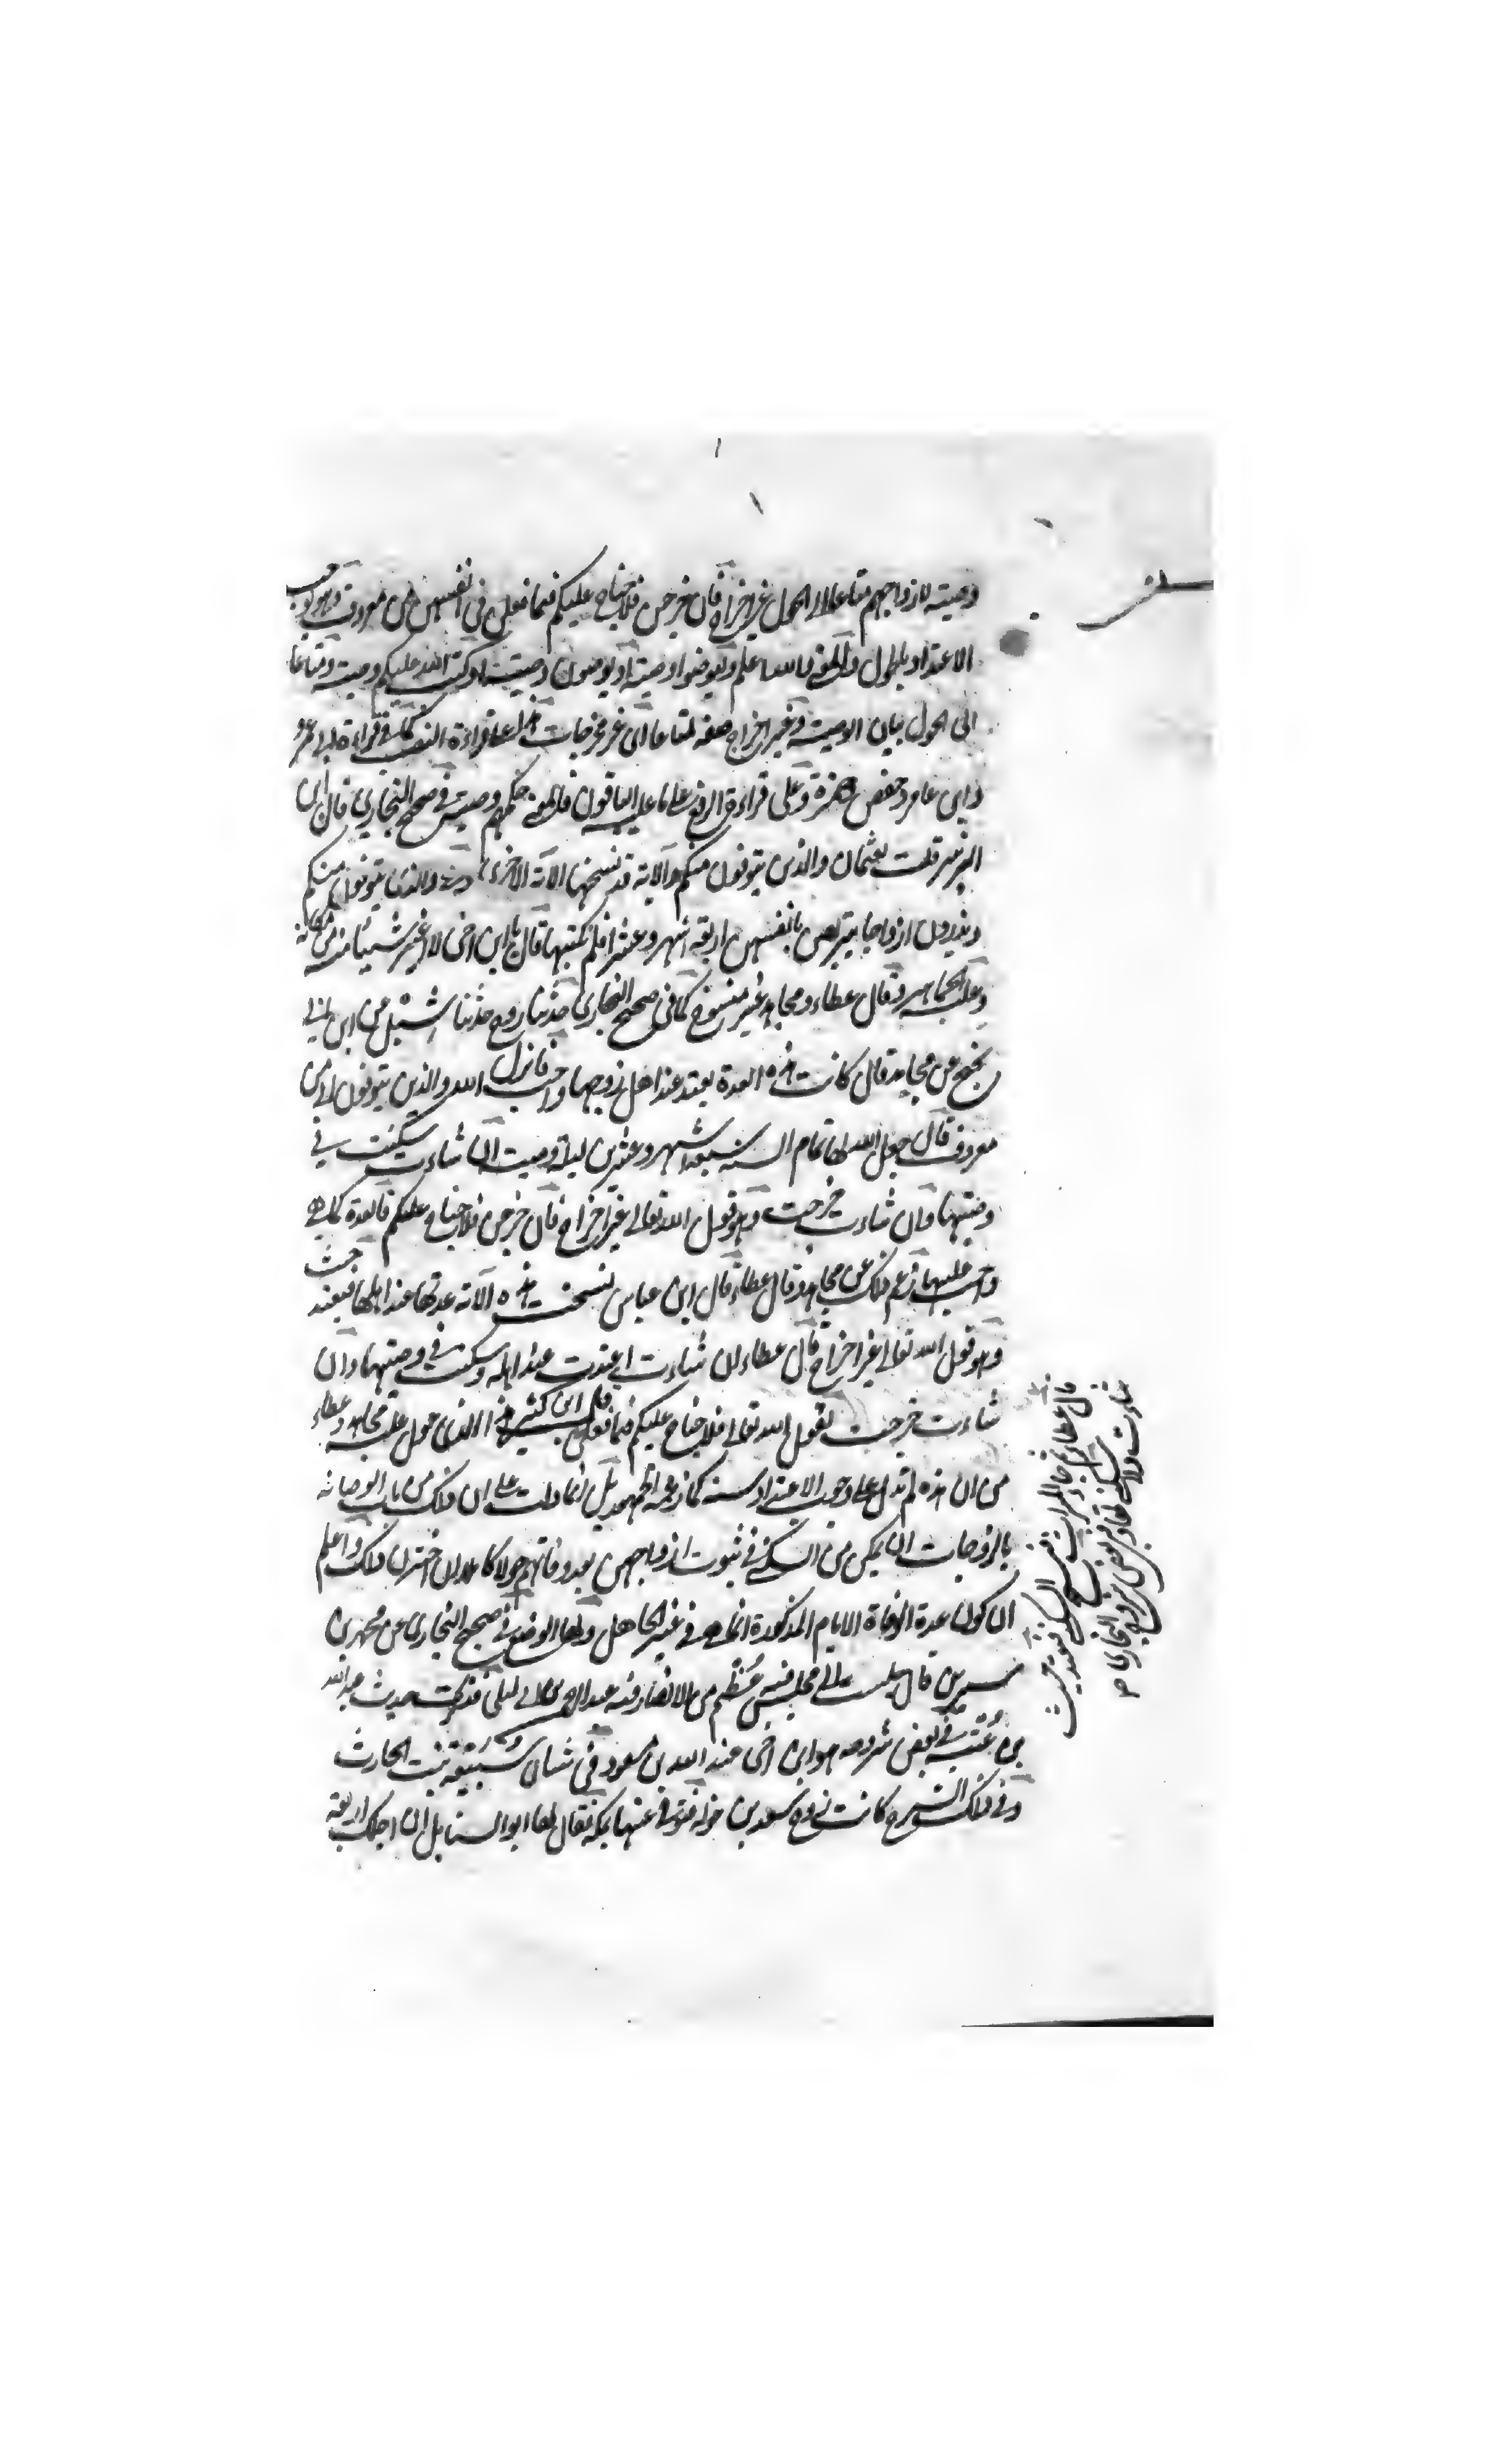 وصية لازواجهم متاعا الى الحول غير اخراج فان خرجن فلا جناح عليكم فيما فعلن في انفسهن من معروف وهو يوجب
الاعتداد بالحول والمعنى والله اعلم وليوصوا وصية او يوصون وصية او كتب الله عليكم وصية ومتاعا
الى الحول بيان الوصية وغير اخراج صفة لمتاعا اى غير مخرجات هذا على قراءة النصب كما في قراءة ابى عمرو
وابن عامر وحفص وحمزة وعلى قراءة الرفع على ما عليه الباقون فالمعنى حكمهم وصية في صحيح البخاري قال ابن
الزبير قلت لعثمان والذين يتوفون منكم الاية قد نسختها الآية الاخرى والذين يتوفون منكم
ويذرون ازواجا يتربصن بانفسهن اربعة اشهر وعشرا فلم تكتبها قال يا ابن اخى لا اغير شيئا منه من مكانه
وعليه الجماهير وقال عطاء ومجاهد غير منسوخ كما في صحيح البخاري حدثنا روح حدثنا شبل عن ابن ابى
نجيح عن مجاهد قال كانت هذه العدة يعتد عند اهل زوجها واجب فانزل الله والذين يتوفون الى من
معروف قال جعل الله لها تمام السنة سبعة اشهر وعشرين ليلة وصية ان شاءت سكنت في
وصيتها وان شاءت خرجت وهو قول الله تعالى غير اخراج فان خرجن فلا جناح عليكم فالعدة كما هي
واجب عليها زعم ذلك عن مجاهد وقال عطاء قال ابن عباس نسخت هذه الآية عدتها عند اهلها فيعتد حيث
وهو قول الله تعالى غير اخراج قال عطاء ان شاءت اعتدت عند اهله وسكنت في وصيتها وان
شاءت خرجت لقول الله تعالى فلا جناح عليكم فيما فعلن قال ابن كثير هذا الذي عول عليه مجاهد وعطاء
من ان هذه لم تدل على وجوب الاعتداد سنة كما زعمه الجمهور بل انما دلت على ان ذلك من باب الوصاية
بالزوجات ان يمكن من السكنى في بيوت ازواجهن بعد وفاتهم حولا كاملا ان اخترن ذلك واعلم
ان كون عدة الوفاة الايام المذكورة انما هي في غير الحامل ولها الوضع في صحيح البخاري عن محمد بن
سيرين قال جلست الى مجلس فيه عظم من الانصار وفيه عبد الرحمن بن ابى ليلى فذكرت حديث عبد الله
بن عتبة في بعض شروحه هو ابن اخى عبد الله بن مسعود في شان سبيعة بنت الحارث
وفي ذلك الشرح كانت زوج سعد بن خولة فتوفى عنها بمكة فقال لها ابو السنابل ان اجلك اربعة
قال عطاء ثم جاء الميراث فنسخ السكنى فتعتد حيث
شاءت ولا سكنى لها
البخاري